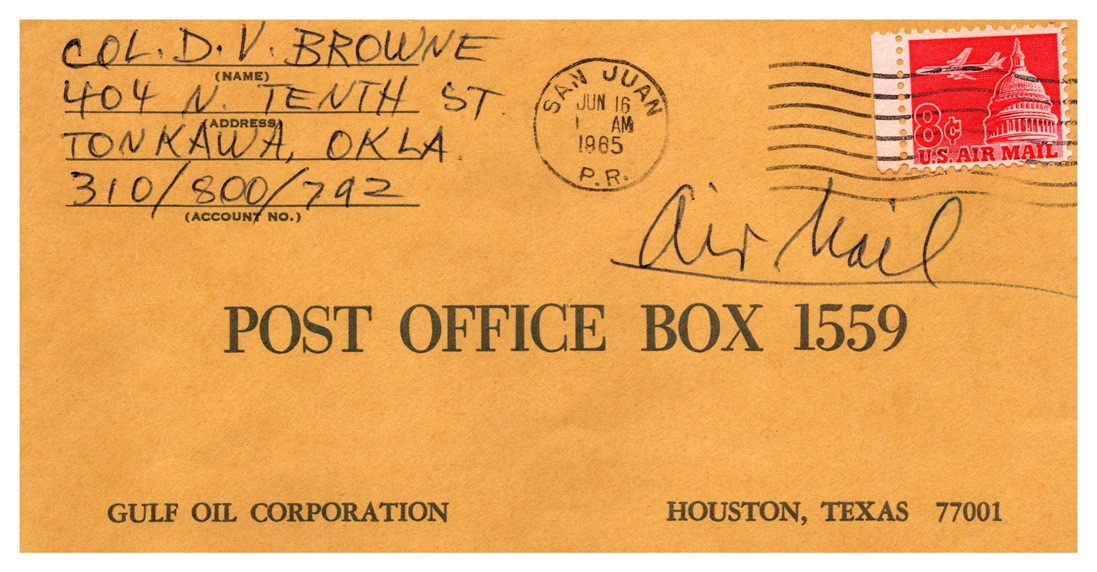 COL. D. V. BROWNE
(NAME)
404 N. TENTH ST.
(ADDRESS)
TONKAWA, OKLA.
310/800/792
(ACCOUNT NO.)
SAN JUAN
JUN 16
1 AM
1965
P.R.
8¢
U.S. AIR MAIL
Air Mail
POST OFFICE BOX 1559
GULF OIL CORPORATION
HOUSTON, TEXAS 77001